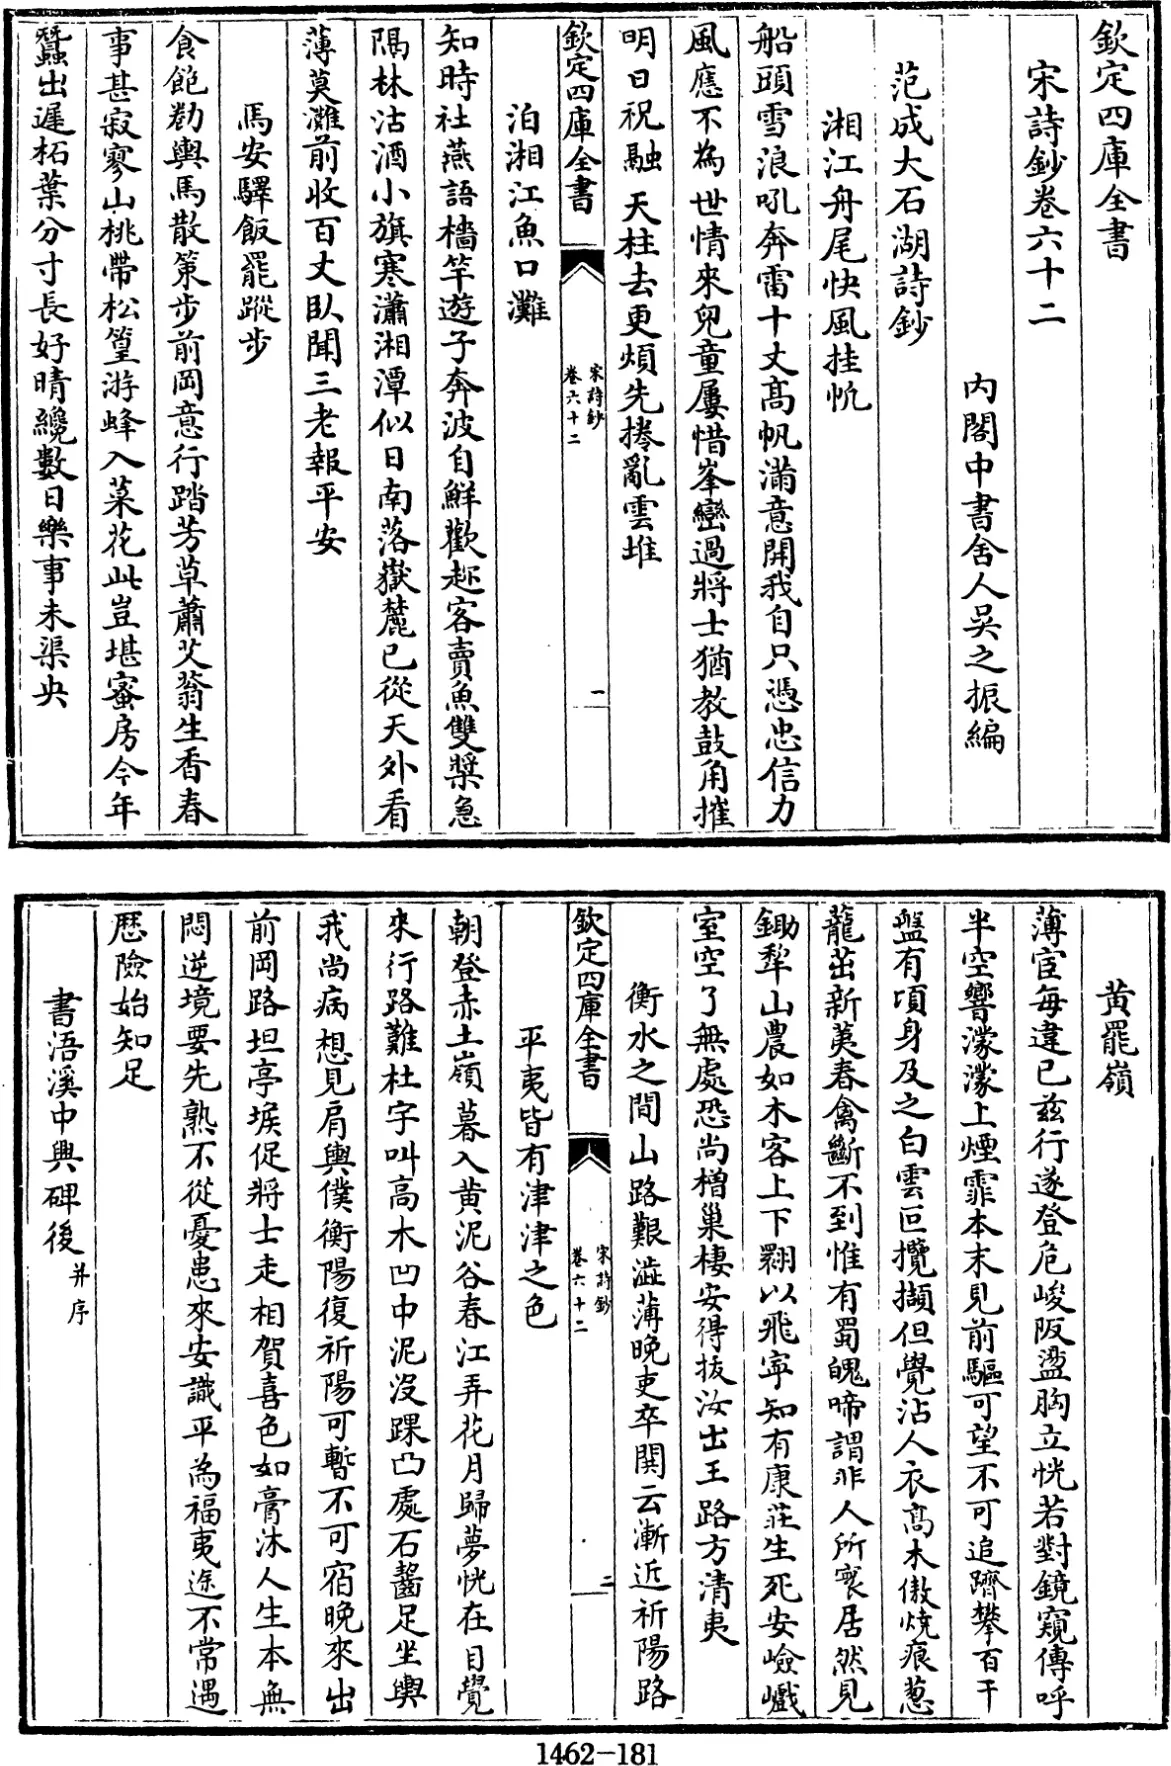 欽定四庫全書
宋詩鈔卷六十二
內閣中書舍人吳之振編
范成大石湖詩鈔
湘江舟尾快風挂帆
船頭雪浪吼奔雷十丈高帆滿意開我自只憑忠信力
風應不為世情來兒童屢惜峯巒過將士猶教鼓角摧
明日祝融天柱去更煩先捲亂雲堆
欽定四庫全書
宋詩鈔
卷六十二
一
泊湘江魚口灘
知時社燕語檣竿遊子奔波自鮮歡趁客賣魚雙槳急
隔林沽酒小旗寒瀟湘潭似日南落嶽麓已從天外看
薄莫灘前收百丈臥聞三老報平安
馬安驛飯罷蹤步
食飽勌輿馬散策步前岡意行踏芳草蕭艾蓊生香春
事甚寂寥山桃帶松篁游蜂入菜花此豈堪蜜房今年
蠶出遲柘葉分寸長好晴纔數日樂事未渠央
黃羆嶺
薄宦每違已茲行遂登危峻阪盪胸立恍若對鏡窺傳呼
半空響濛濛上煙霏本末見前驅可望不可追躋攀百千
盤有頃身及之白雲叵攬擷但覺沾人衣高木傲燒痕葱
蘢茁新荑春禽斷不到惟有蜀魄啼謂非人所寰居然見
鋤犂山農如木客上下翾以飛寧知有康莊生死安嶮巇
室空了無處恐尚橧巢棲安得拔汝出王路方清夷
衡水之間山路艱澁薄晚吏卒関云漸近祈陽路
欽定四庫全書
宋詩鈔
卷六十二
二
平夷皆有津津之色
朝登赤土嶺暮入黄泥谷春江弄花月歸夢恍在目覺
來行路難杜宇叫高木凹中泥沒踝凸處石齧足坐輿
我尚病想見肩輿僕衡陽復祈陽可暫不可宿晚來出
前岡路坦亭堠促將士走相賀喜色如膏沐人生本無
悶逆境要先熟不從憂患來安識平為福夷途不常遇
歷險始知足
書浯溪中興碑後并序
1462-181